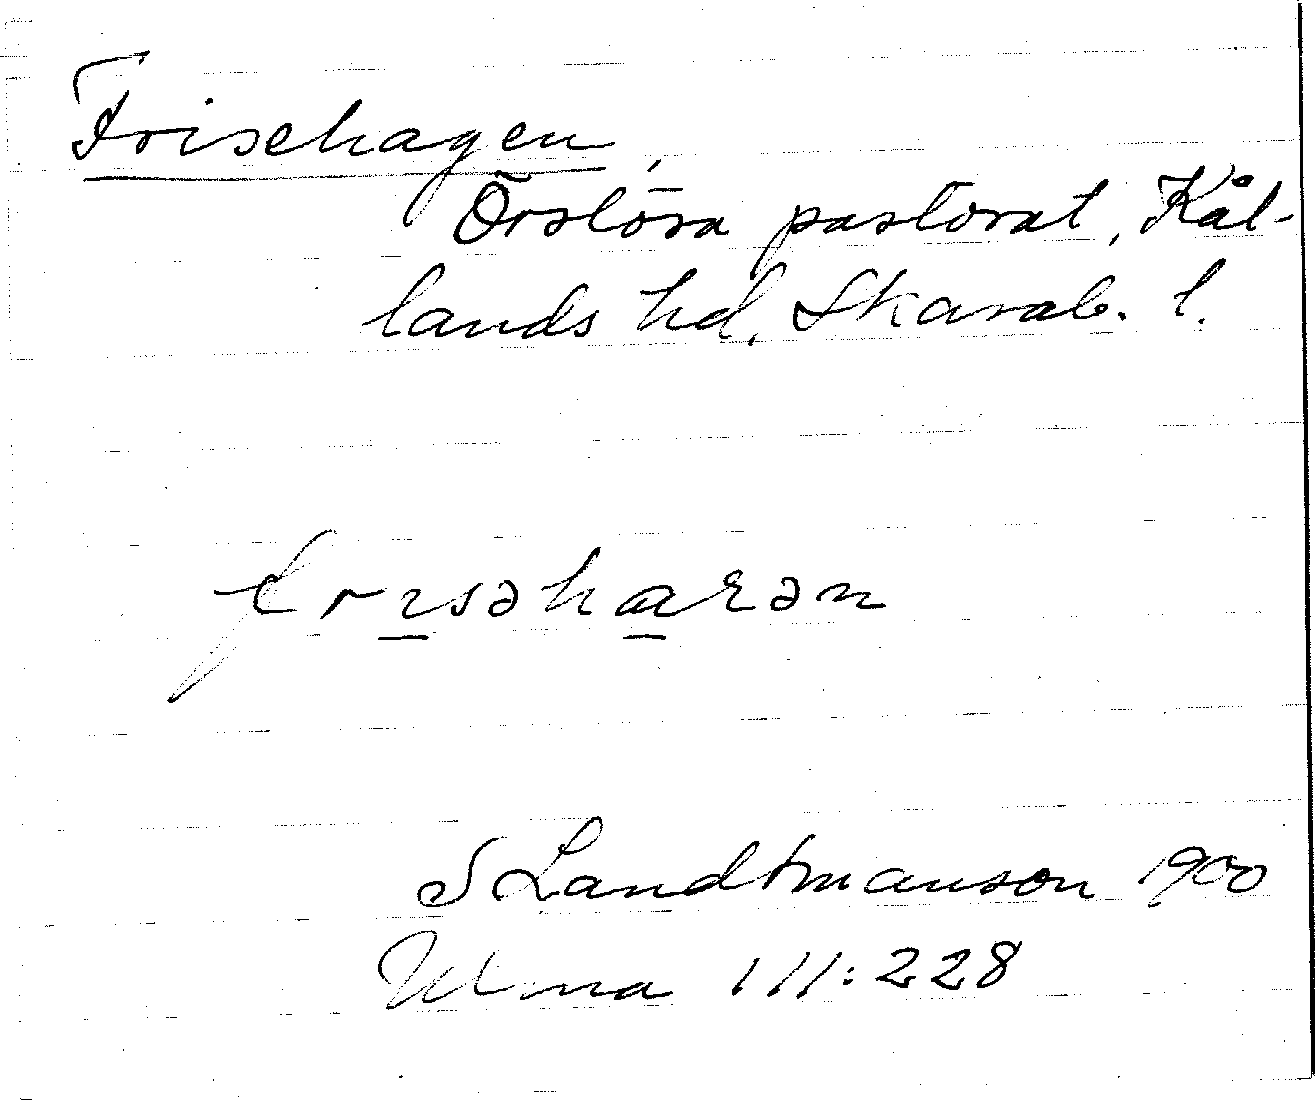 Frisehagen,
Örslösa pastorat, Kål-
lands hd, Skarab. l.
frisəhaʀən
S Landtmanson 1900
Ulma 111:228